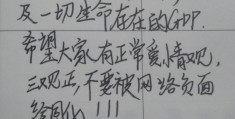 及一切生命存在的GDP.
希望大家有正常爱情观,
三观正,不要被网络负面
给同化!!!